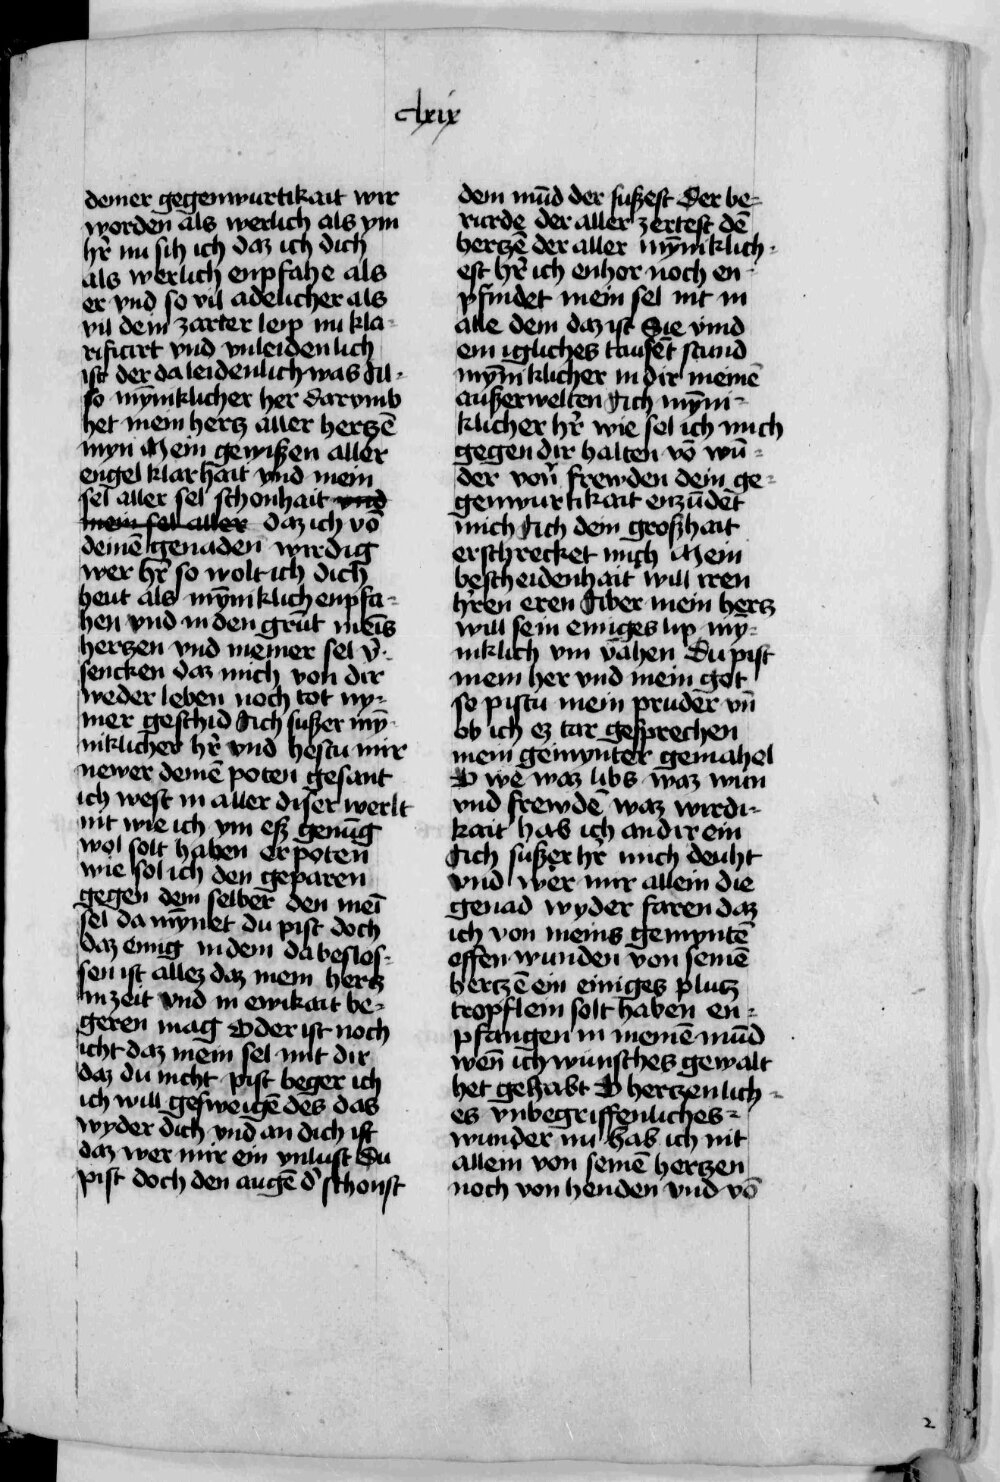 clxix
deiner gegenwurtikait wir
worden als werlich als ym
hr̄ nu sih ich daz ich dich
als werlich enpfahe als
er vnd so vil adelicher als
vil dein zarter leip nu kla-
rificirt vnd vnleidenlich
ist der da leidenlich was Al-
so mȳniklicher her darvmb
het mein hertz aller hertzē
myn Mein gewißen aller
engel klarhait vnd mein
sel aller sel schonhait vnd
mein sel aller daz ich vō
deinē genaden wirdig
wer hr̄ so wolt ich dich
heut als mȳniklich enpfa-
hen vnd in den grūt meīs
hertzen vnd meiner sel v̄-
sencken daz mich von dir
weder leben noch tot ny-
mer geschid Ach sußer mȳ-
niklicher hr̄ vnd hestu mir
newer deinē poten gesant
ich west in aller diser werlt
nit wie ich ym eß genūg
wol solt haben erpoten
wie sol ich den geparen
gegen dem selber den meī
sel da mȳnet du pist doch
daz einig in dem da beslos-
sen ist allez daz mein hertz
in zeit vnd in ewikait be-
geren mag Oder ist noch
icht daz mein sel mit dir
daz du nicht pist beger ich
ich will gesweigē des das
wyder dich vnd an dich ist
daz wer mir ein vnlust Du
pist doch den augē d' schonst
dem mūd der sußest Der be-
rurde der aller zertest dē
hertzē der aller mȳniklich-
est hr̄ ich enhor noch en-
pfindet mein sel nit in
alle dem daz ist Sie vind
ein igliches tausēt stund
mȳniklicher in dir meinē
außerwelten Ach mȳni-
klicher hr̄ wie sol ich mich
gegen dir halten vō wū-
der von frewden dein ge-
genwurtikait enzūdet
mich Ach dein großhait
erschrecket mich Mein
bescheidenhait will iren
hr̄en eren Aber mein hertz
will sein einiges lip mȳ-
niklich vm vahen Du pist
mein her vnd mein got
so pistu mein pruder vn̄
ob ich ez tar gesprechen
mein gemynter gemahel
O we waz libs waz wun
vnd frewdē waz wirdi-
kait hab ich an dir ein
Ach sußer hr̄ mich deuht
vnd wer mir allein die
genad wyder faren daz
ich von meins gemyntē
offen wunden von seinē
hertzē ein einiges plutz
tropflein solt haben en-
pfangen in meinē mūd
wen̄ ich wunsches gewalt
het gehabt O hertzenlich-
es vnbegriffenliches-
wunder nu hab ich nit
allein von seinē hertzen
noch von henden vnd vō
2